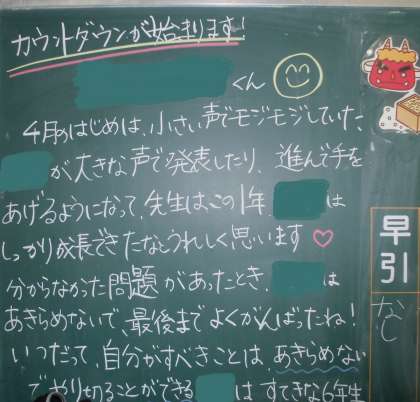 カウントダウンが始まります!
くん
4月のはじめは、小さい声でモジモジしていた、
が大きな声で発表したり、進んで手を
あげるようになって、先生は、この1年、
は
しっかり成長できたなとうれしく思います♡
分からなかった問題があったとき、
は
あきらめないで、最後までよくがんばったね!
いつだって、自分がすべきことは、あきらめない
でやり切ることができる
は、すてきな6年生
早引
なし